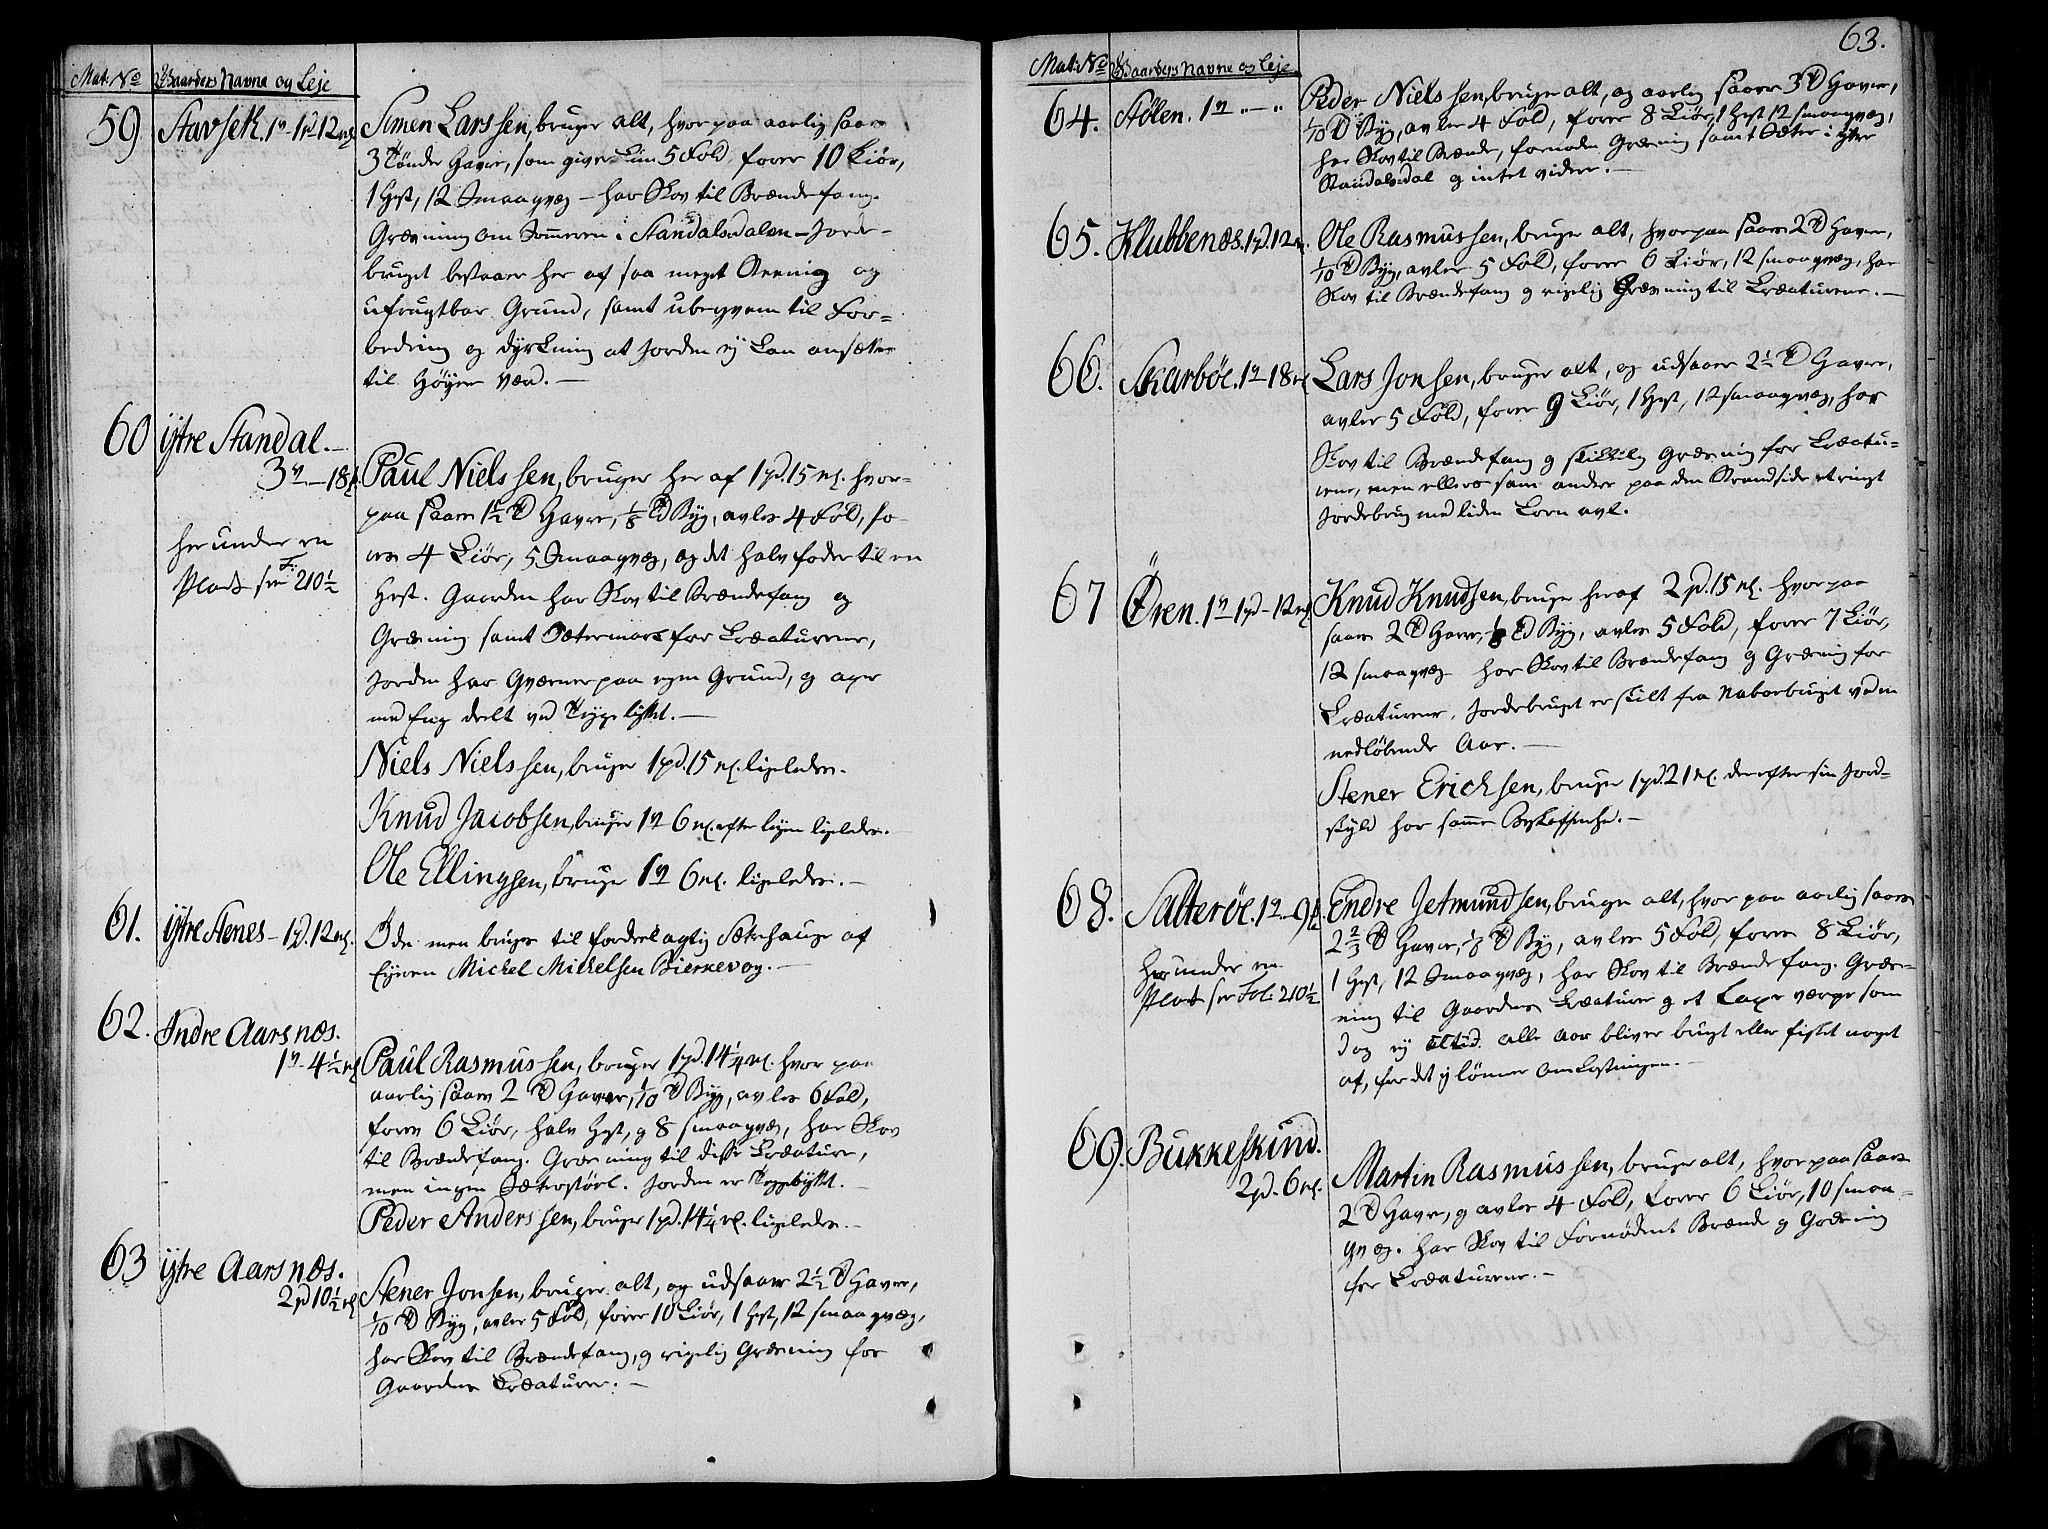 Mat: No Gaarders Navne og Leje
59 Stavsek. 1v-1pd12mk Simen Larssen, bruger alt, hvorpaa aarlig saaes
3 Tønder Havre, som giver kun 5 Fold, foder 10 Kiør,
1 Hest, 12 Smaaqvæg – har Skov til Brændefang.
Græsning om Sommeren i Standalsdalen – Jorde-
bruget bestaaer her af saa meget Stening og
ufrugtbar Grund, samt ubeqvem til For-
bedring og dyrkning at Jorden ej kan ansættes
til Høyere værd. –
60 ÿtre Standal. –
3v – 18mk Paul Nielssen, bruger her af 1pd. 15mk. hvor-
paa saaes 1½ Td Havre, ⅛ Td Byg, avles 4 Fold, fo-
her under en
des 4 Kiør, 5 Smaaqvæg, og det halv foder til en
Plads see F: 210½
Hest. Gaarden har Skov til Brændefang og
Græsning samt Sætermark for Creaturene,
Jorden har Qværner paa egen Grund, og ager
med Eng deelt ved Teigebyttet. –
Niels Nielssen, bruger 1pd. 15mk. ligeledes.
Knud Jacobsen, bruger 1v 6mk. efter leyen ligeledes.
Ole Ellingsen, bruger 1v 6mk. ligeledes. –
61. ÿtre Stenes – 1pd. 12mk. Øde men bruges til fordelagtig af
Eyeren Michel Mickelsen Bierkevog. –
62. Indre Aarsnæs.
1v. 4½mk Paul Rasmussen, bruger 1pd. 14¼mk. hvor paa
aarlig saaes 2 Td Havre, 1/10 Td Byg, avles 6 Fold,
foder 6 Kiør, halv Hest, og 8 smaaqvæg, har Skov
til Brændefang. Græsning til disse Creature,
men ingen Sæterstøel. Jorden er Teigebyttet.
Peder Anderssen, bruger 1pd. 14¼mk. ligeledes. –
63 ÿtre Aarsnæs.
2pd 10½mk Stener Jonsen, bruger alt, og udsaaer 2½ Td Havre,
1/10 Td Byg, avles 5 Fold, foder 10 Kiør, 1 Hest, 12 smaaqvæg,
har Skov til Brændefang, og rigelig Græsning for
Gaardens Creature. –
63.
Mat: No Gaarders Navne og Leje
64. Stølen. 1v „ – „ Peder Nielssen, bruger alt, og aarlig saaer 3 Td Havre,
1/10 Td Byg, avles 4 Fold, foder 8 Kiør, 1 Hest 12 smaaqvæg,
har Skov til Brænde, fornøden Græsning samt Sæter i ÿtre
Standalsdal og intet videre. –
65. Klubbenæs. 1pd. 12mk. Ole Rasmussen, bruger alt, hvorpaa saaes 2 Td Havre,
1/10 Td Byg, avles 5 Fold, foder 6 Kiør, 12 smaaqvæg, har
Skov til Brændefang og rigelig Græsning til Creaturene. –
66. Skarbøe. 1v – 18mk Lars Jonsen, bruger alt, og udsaaer 2½ Td Havre,
avles 5 Fold, foder 9 Kiør, 1 Hest, 12 smaaqvæg, har
Skov til Brændefang og skikkelig Græsning for Creatu-
rene, men ellers som andre paa den Strandside et ringt
Jordebrug med liden Korn avl.
67 Øren. 1v – 1pd – 12mk Knud Knudsen, bruger heraf 2pd. 15mk. hvorpaa
saaes 2 Td Havre, ⅛ Td Byg, avles 5 Fold, foder 7 Kiør,
12 smaaqvæg har Skov til Brændefang og Græsning for
Creaturene. Jordebruget er skilt fra Naboebruget ved en
nedløbende Aae. –
Stener Erichsen, bruger 1pd. 21mk. derefter sin Jord-
skyld har samme Beskaffenhed. –
68. Salterøe. 1v – 9mk. Endre Jetmundsen, bruger alt, hvor paa aarlig saaes
2⅔ Td Havre, ⅛ Td Byg, avles 5 Fold, foder 8 Kiør,
Her under en
1 Hest, 12 Smaaqvæg, har Skov til Brændefang. Græs-
Plads see Fol: 210½
ning til Gaardens Creature og et Laxe værpe som
dog ej altid alle Aar bliver brugt eller fisket noget
af, for det ej lønner omkostningen. –
69. Bukkeskind.
2pd. 6mk. Martin Rasmussen, bruger alt, hvorpaa saaes
2 Td Havre, og avles 4 Fold, foder 6 Kiør, 10 smaa-
qvæg. har Skov til Fornødent Brænde og Græsning
for Creaturene. –